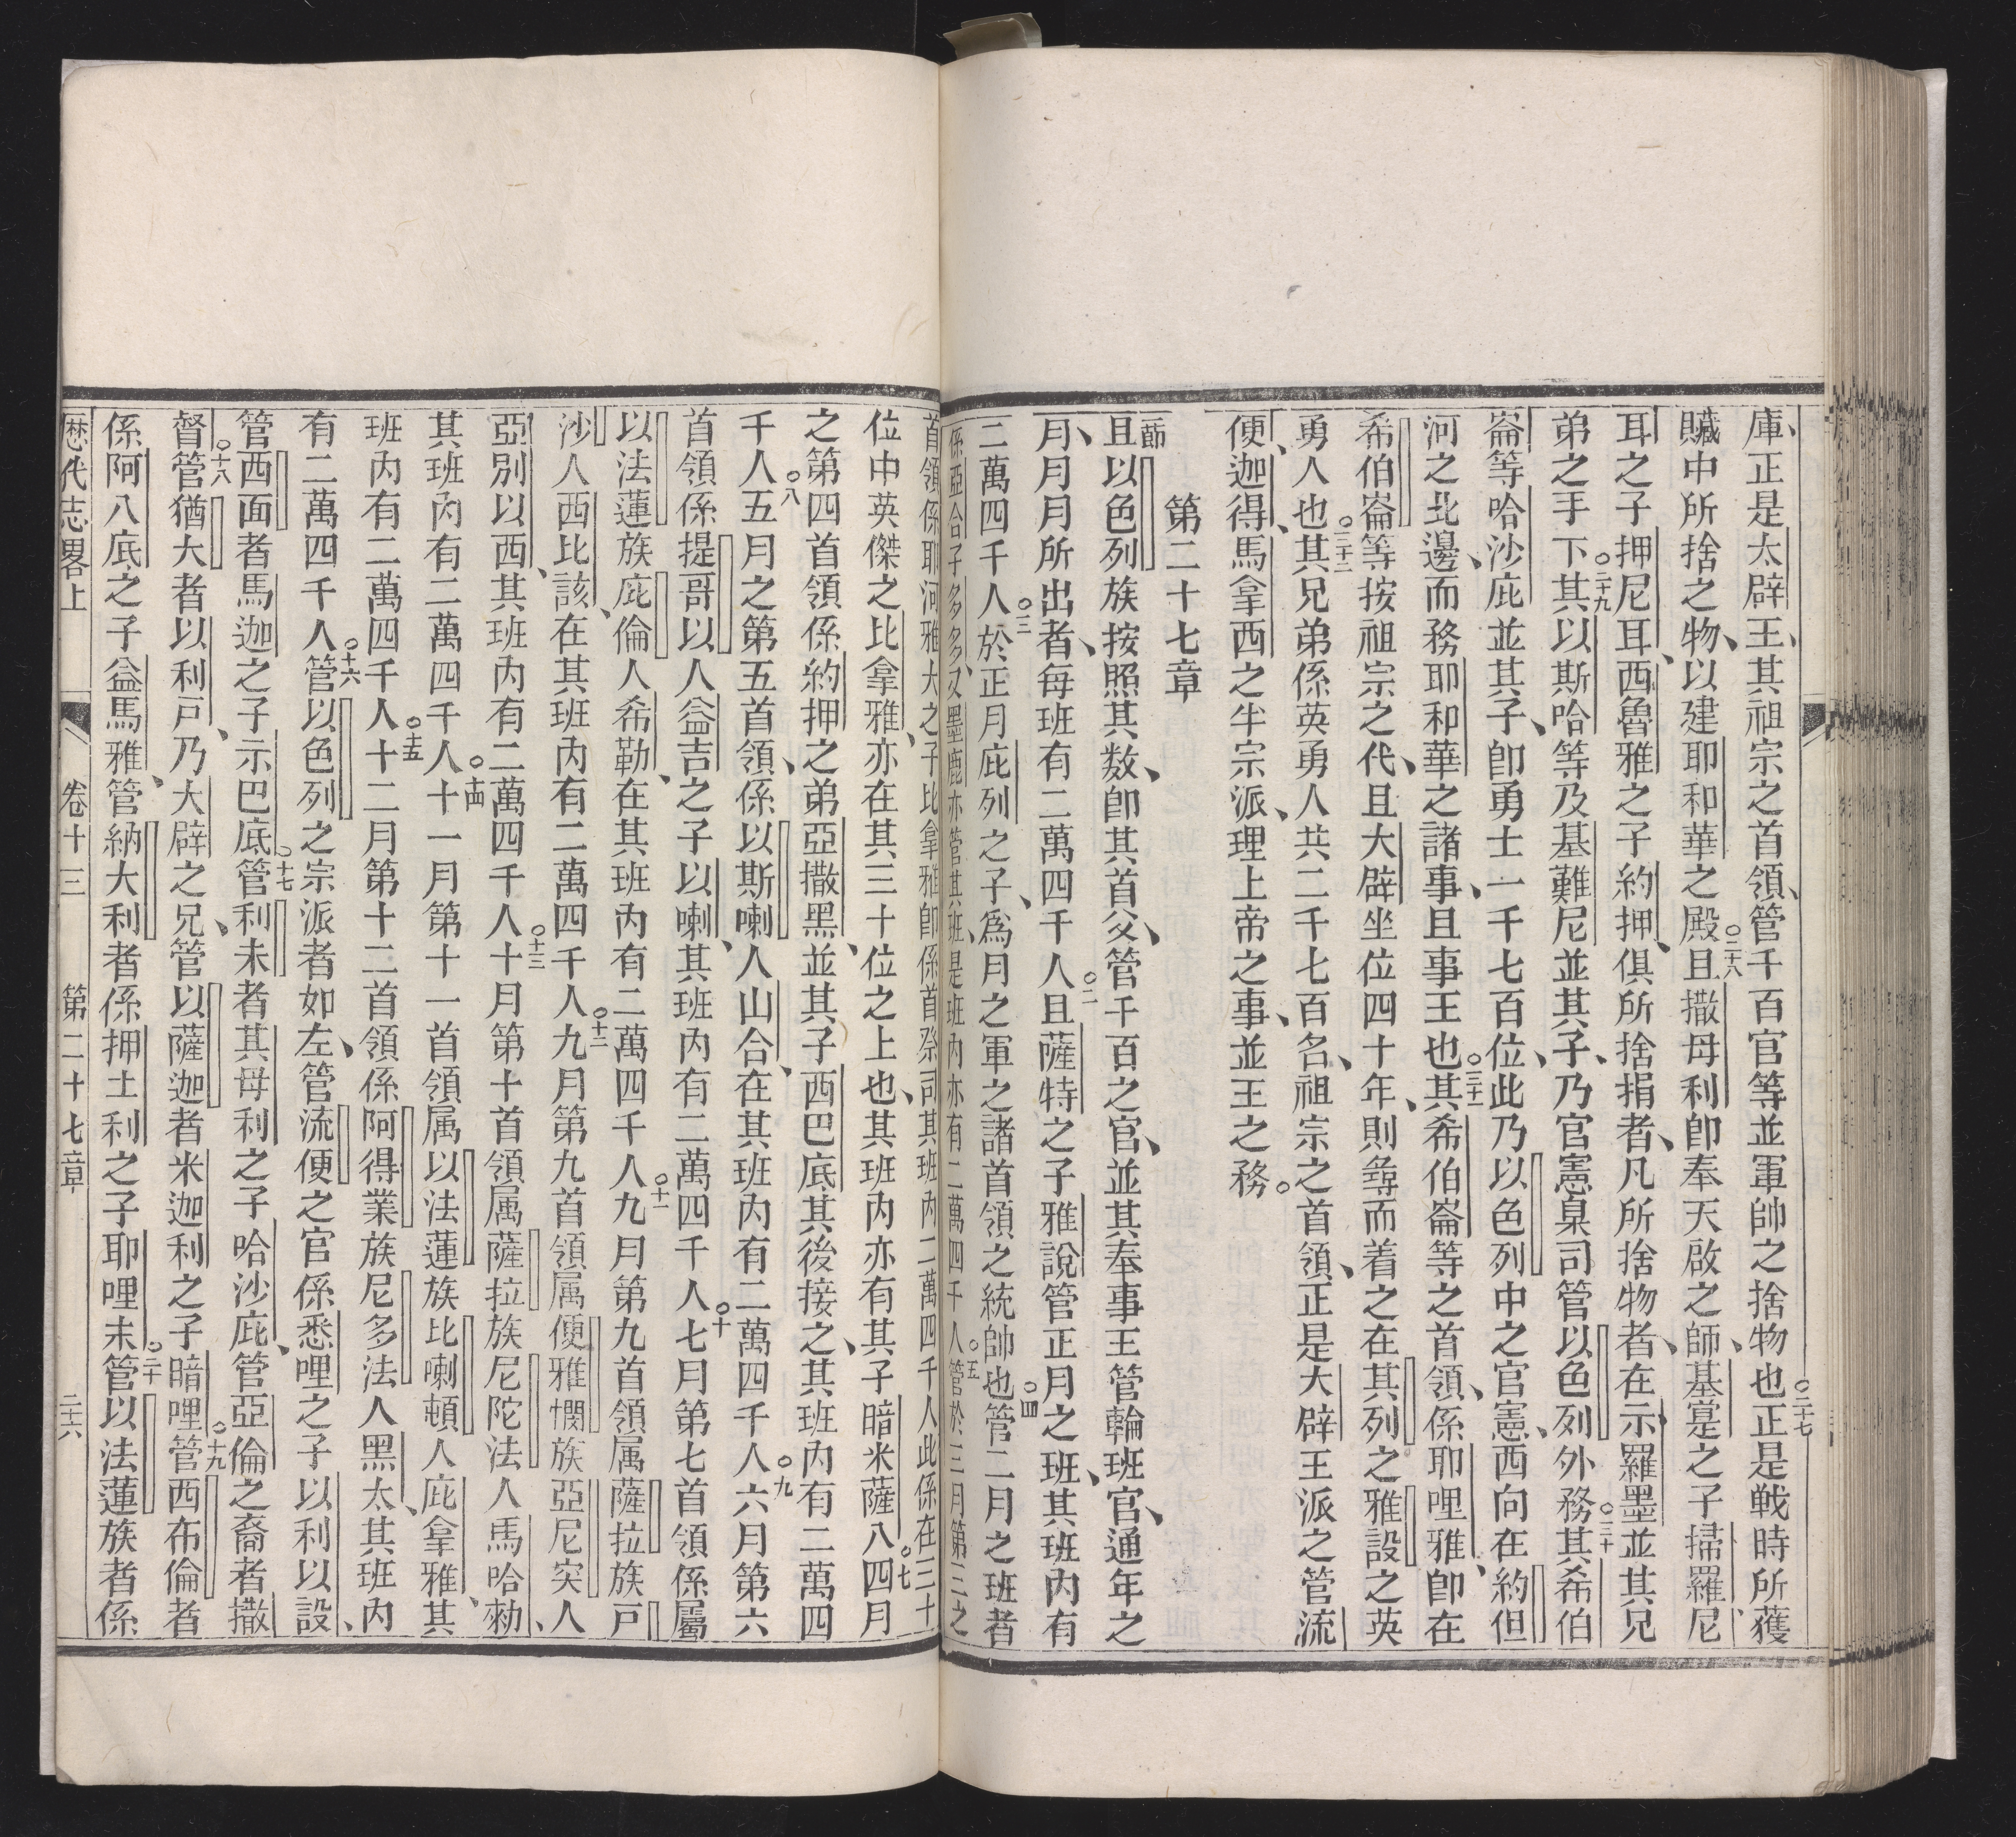 庫、正是太辟王、其祖宗之首領、管千百官等並軍帥之捨物也○二十七正是戰時所獲
贓中所捨之物、以建耶和華之殿○二十八且撒母利卽奉天啟之師、基寔之子掃羅尼
耳之子押尼耳、西魯雅之子約押、俱所捨捐者、凡所捨物者、在示羅墨並其兄
弟之手下○二十九其以斯哈等及基難尼並其子、乃官憲臬司管以色列外務○三十其希伯
崙等哈沙庇並其子、卽勇士一千七百位、此乃以色列中之官憲、西向在約但
河之北邊、而務耶和華之諸事、且事王也○三十一其希伯崙等之首領、係耶哩雅、卽在
希伯崙等按祖宗之代、且大辟坐位四十年、則尋而着之在其列之雅設之英
勇人也○三十二其兄弟係英勇人共二千七百名、祖宗之首領、正是大辟王派之管流
便、迦得、馬拿西之半宗派、理上帝之事、並王之務。
第二十七章
節且以色列族按照其数、卽其首父、管千百之官、並其奉事王管輪班官、通年之
月、月月所出者、每班有二萬四千人○二且薩特之子雅說管正月之班、其班內有
二萬四千人○三於正月庇列之子、為月之軍之諸首領之統帥也○四管二月之班者
係亞合子多多、又墨鹿亦管其班、是班內亦有二萬四千人○五管於三月第三之
首領係耶河雅大之子比拿雅卽係首祭司其班內二萬四千人此係在三十
位中英傑之比拿雅、亦在其三十位之上也、其班內亦有其子暗米薩八○七四月
之第四首領係約押之弟亞撒黑、並其子西巴底其後接之、其班內有二萬四
千人○八五月之第五首領、係以斯喇人山合、在其班內有二萬四千人○九六月第六
首領係提哥以人益吉之子以喇、其班內有二萬四千人○十七月第七首領係屬
以法蓮族庇倫人希勒、在其班內有二萬四千人○十一九月第九首領属薩拉族戸
沙人西比該、在其班內有二萬四千人○十二九月第九首領属便雅憫族亞尼突人
亞別以西、其班內有二萬四千人○十三十月第十首領属薩拉族尼陀法人馬哈勑、
其班內有二萬四千人○十四十一月第十一首領属以法蓮族比喇頓人庇拿雅、其
班內有二萬四千人○十五十二月第十二首領係阿得業族尼多法人黑太、其班內
有二萬四千人○十六管以色列之宗派者如左、管流便之官係悉哩之子以利以設、
管西面者馬迦之子示巴底○十七管利未者其母利之子哈沙庇、管亞倫之裔者撒
督○十八管猶大者以利戸、乃大辟之兄、管以薩迦者米迦利之子暗哩○十九管西布倫者
係阿八底之子益馬雅、管納大利者係押土利之子耶哩末○二十管以法蓮族者係
歷代志畧上 卷十三 第二十七章 二十六